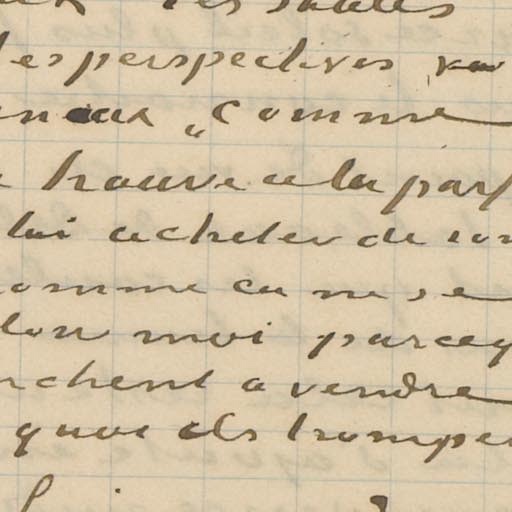 les perspectives
"Comme
trouve cela parf
lui acheter de son
omme ca ne se
lon moi parceq
rchent a vendre
quoi ils trompe